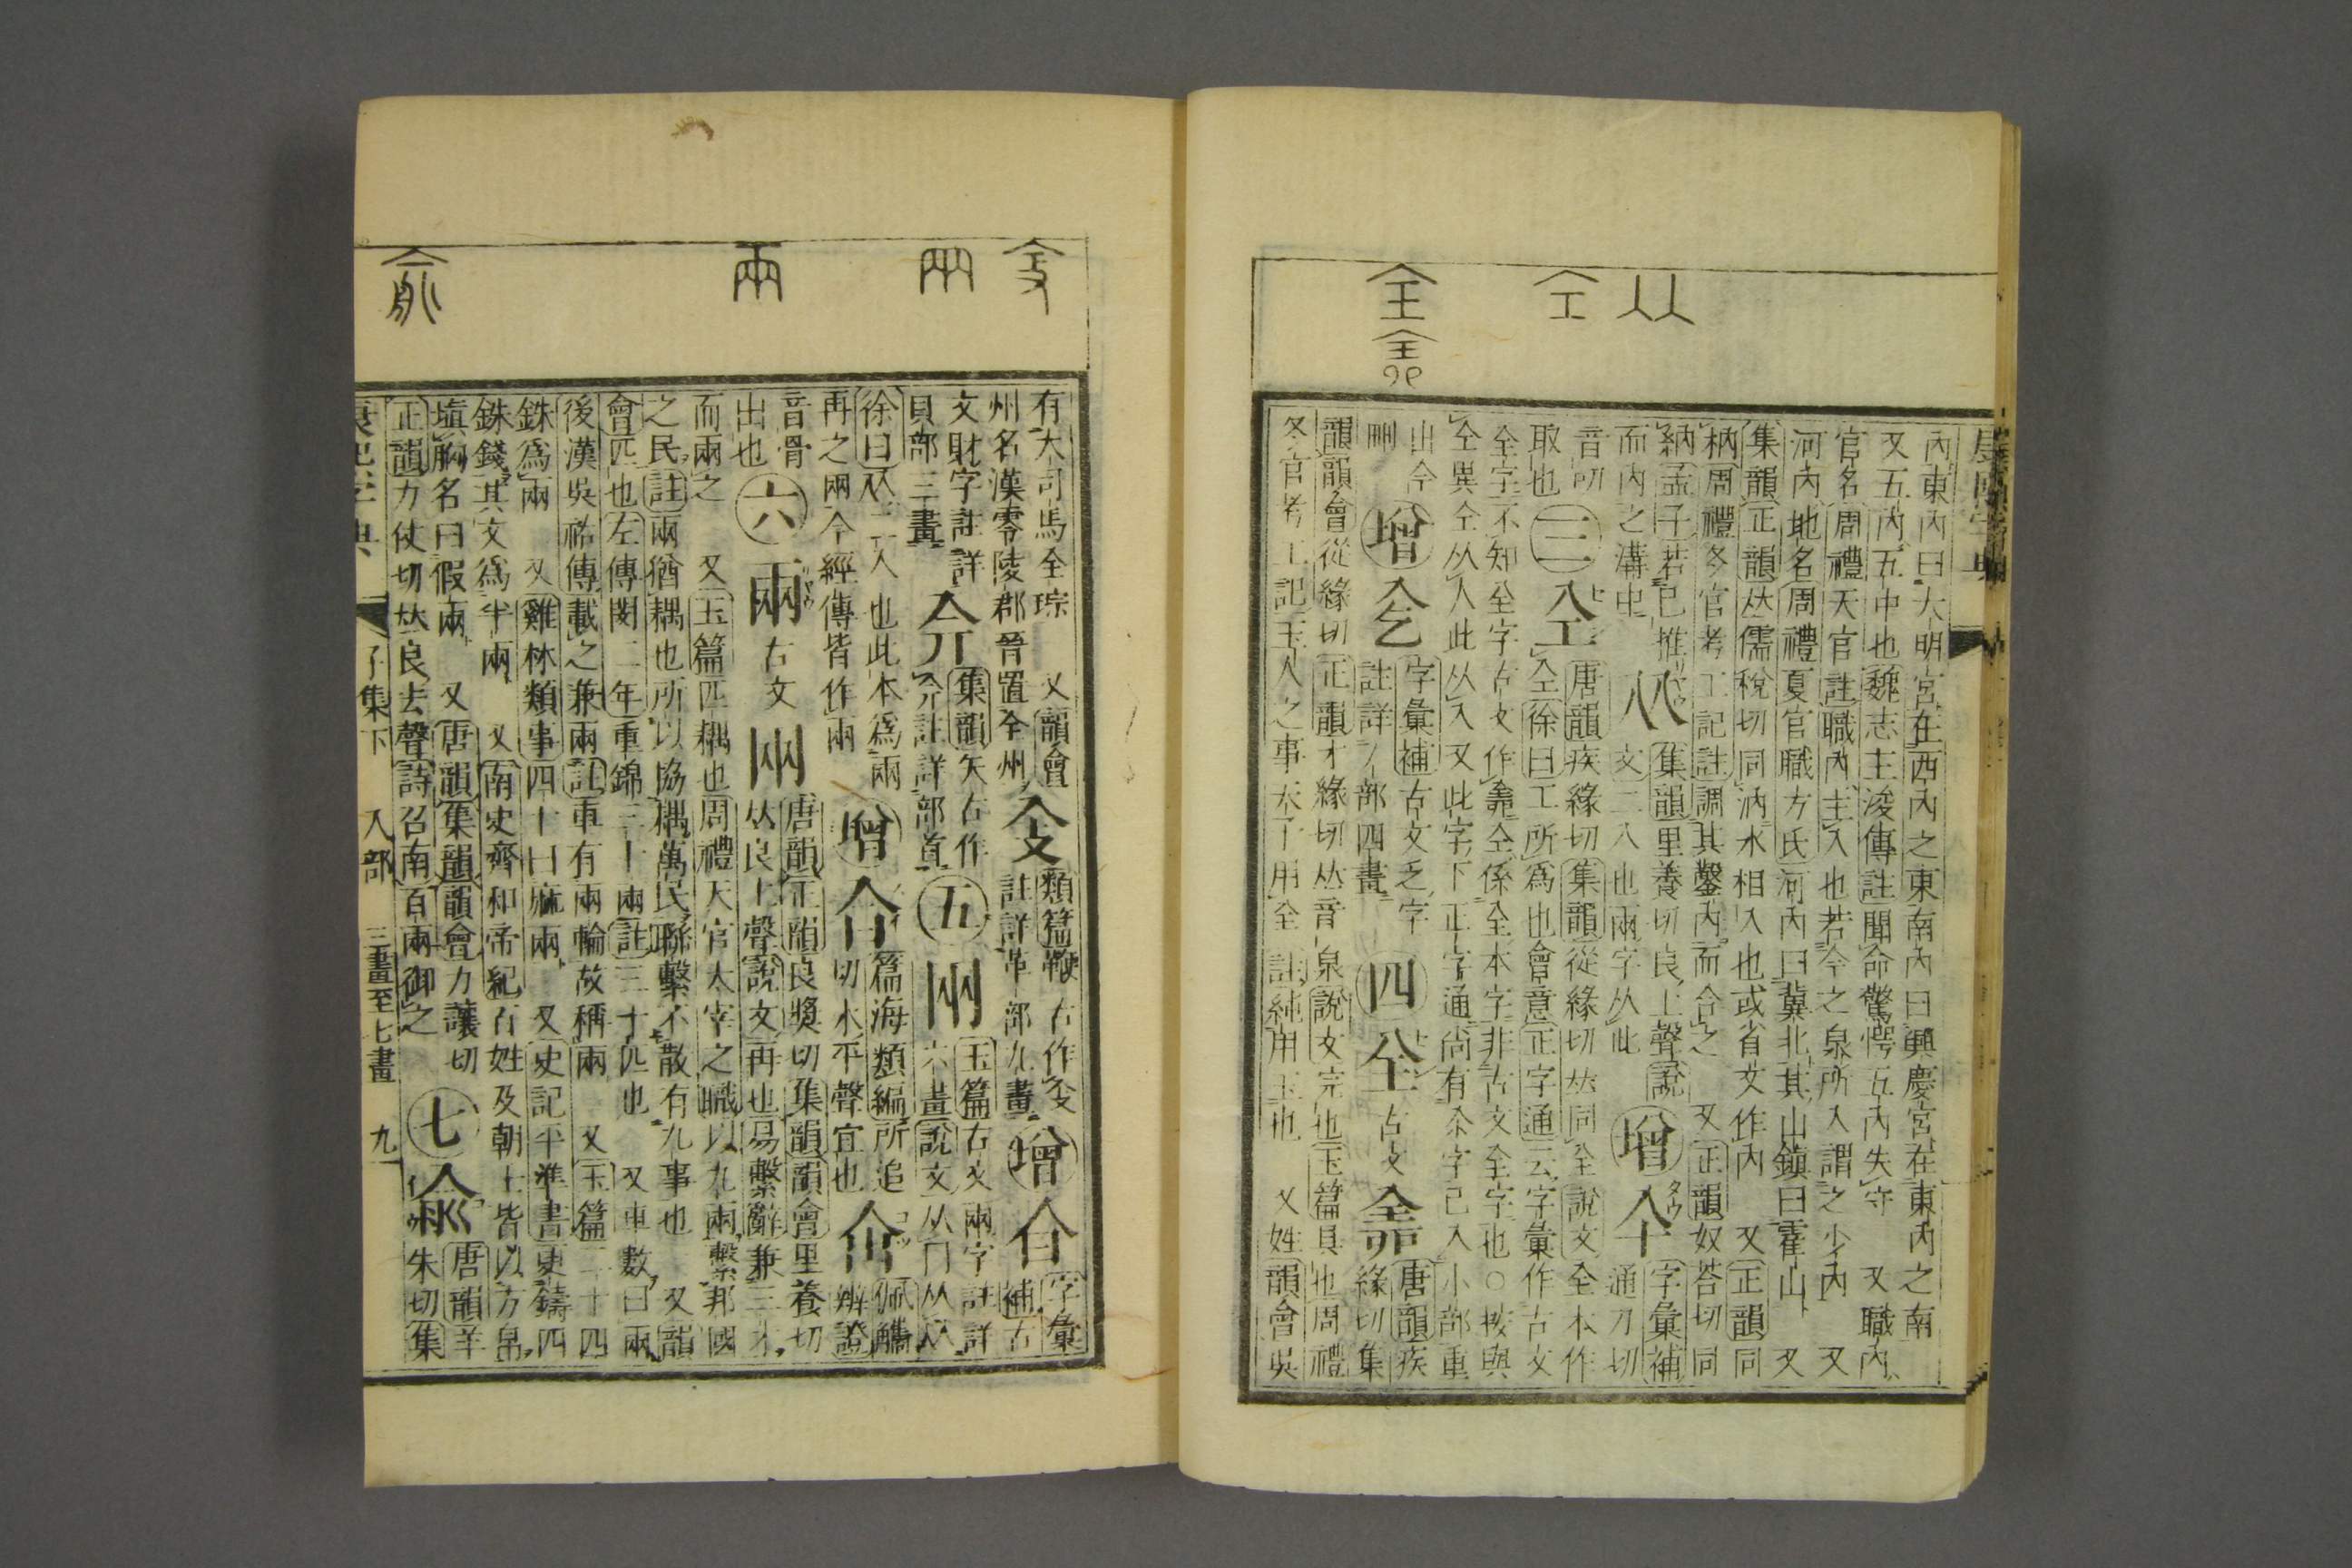 內東內曰大明宮在西內之東南內曰興慶宮在東內之南
又五內五中也魏志王浚傳註聞命驚愕五內失守 又職內
官名周禮天官註職內主入也若今之泉所入謂之少內 又
河內地名周禮夏官職方氏河內曰冀北其山鎮曰霍山 又
集韻正韻𠀤儒稅切同汭水相入也或省文作內 又正韻同
枘周禮冬官考工記註調其鑿內而合之 又正韻奴荅切同
納孟子若已推
而內之溝中
𠓜
集韻里養切良上聲說
文二入也兩字从此
增
仐
字彙補
通刀切
音叨
取也
三
㒰
唐韻疾緣切集韻從緣切𠀤同全說文全本作
仝徐曰工所為也會意正字通云字彙作古文
全字不知全字古文作𠓴仝係全本字非古文全字也○按與
仝異仝从人此从入又此字下正字通尚有氽字已入小部重
出今
刪
增
字彙補古文乏字
註詳丿部四畫
四
全
古文
𠓴
唐韻疾
緣切集
韻韻會從緣切正韻才緣切𠀤音泉說文完也玉篇具也周禮
冬官考工記玉人之事天子用全註純用玉也 又姓韻會吳
有大司馬全琮 又韻會
州名漢零陵郡晉置全州
㑒
類篇鞭古作
註詳革部九畫
增
字彙
補古
文財字註詳
貝部三畫
集韻矢古作
介註詳部首
五
㒳
玉篇古文兩字註詳
六畫說文从冂从𠓜
徐曰𠓜二入也此本為兩
再之兩今經傳皆作兩
增
篇海類編所追
切水平聲宜也
佩觿
辨證
音骨
出也
六
兩
古文
㒳
唐韻正韻良獎切集韻韻會里養切
𠀤良上聲說文再也易繫辭兼三才
而兩之 又玉篇匹耦也周禮天官大宰之職以九兩繫邦國
之民註兩猶耦也所以協耦萬民聯繫不散有九事也 又韻
會匹也左傳閔二年重錦三十兩註三十匹也 又車數曰兩
後漢吳祐傳載之兼兩註車有兩輪故稱兩 又玉篇二十四
銖為兩 又雞林類事四十曰麻兩 又史記平準書更鑄四
銖錢其文為半兩 又南史齊和帝紀百姓及朝士皆以方帛
塡胸名曰假兩 又唐韻集韻韻會力讓切
正韻力仗切𠀤良去聲詩召南百兩御之
七
唐韻羊
朱切集
子集下 入部 三畫至七畫 九